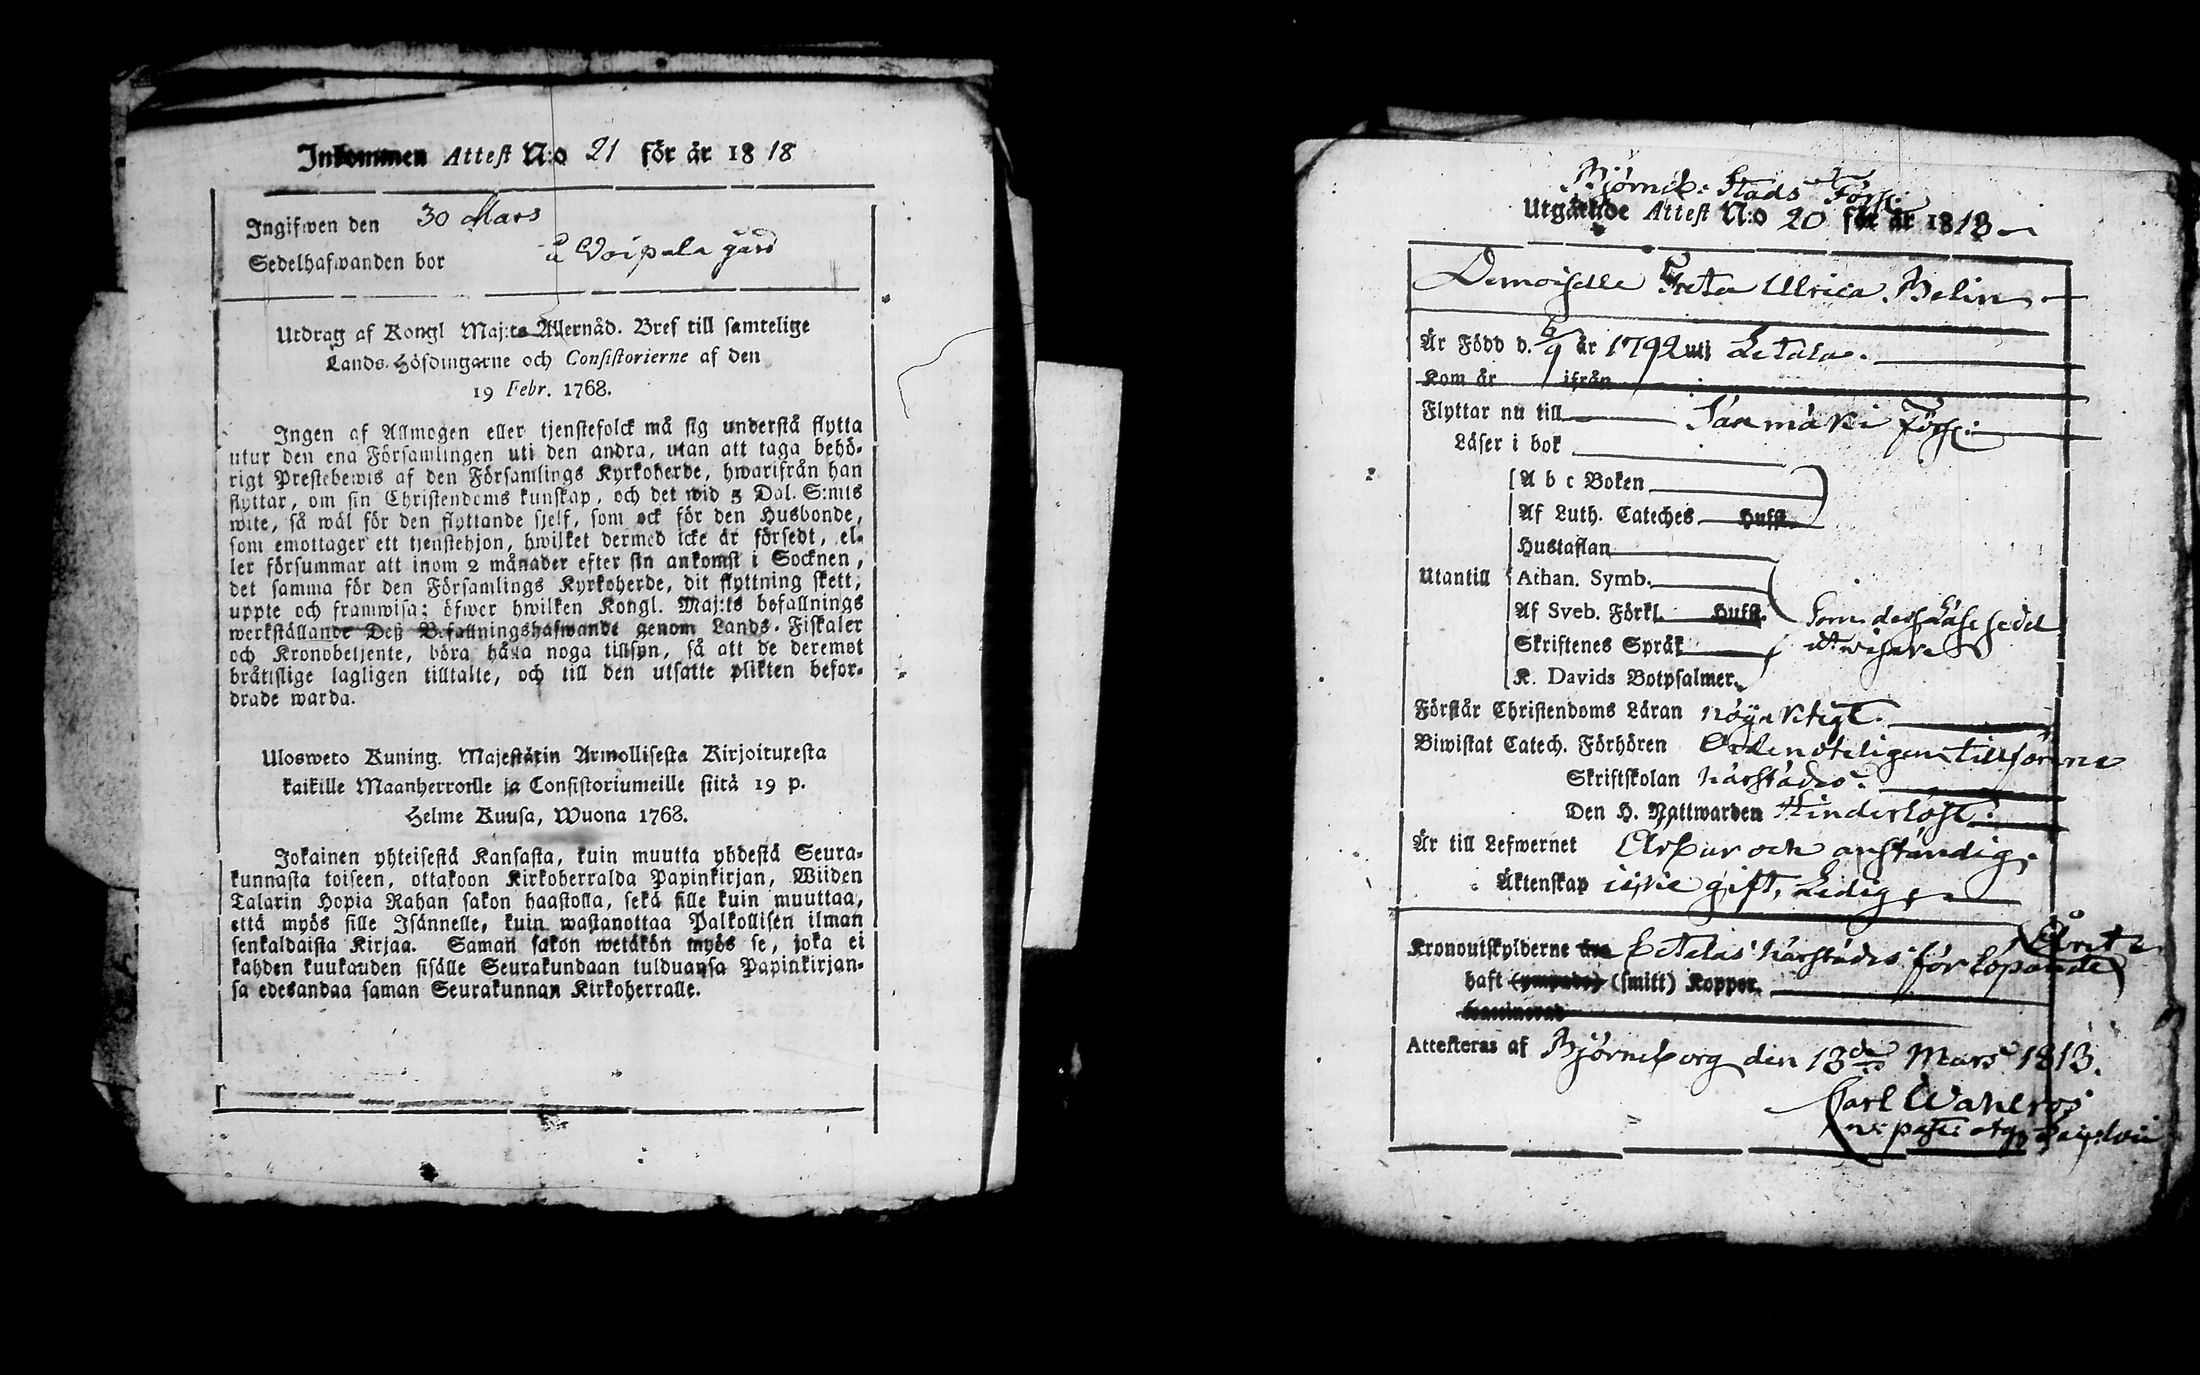 Inkommen Attest N:o 21 för år 1818
Ingifwen den 30 Mars
Sedelhafwanden bor å Voipala gård
Utdrag af Kongl Maj:ts Allernåd. Bref till samtelige
Lands-Höfdingarne och Consistorierne af den
19 Febr. 1768.
Ingen af Allmogen eller tjenstefolck må sig understå flytta
utur den ena Församlingen uti den andra, utan att taga behö-
rigt Prestebewis af den Församlings Kyrkoherde, hwarifrån han
flyttar, om sin Christendoms kunskap, och det wid 5 Dal. S:mts
wite, så wäl för den flyttande sjelf, som ock för den Husbonde,
som emottager ett tjenstehjon, hwilket dermed icke är försedt, el-
ler försummar att inom 2 månader efter sin ankomst i Socknen,
det samma för den Församlings Kyrkoherde, dit flyttning skett,
uppte och framwisa: öfwer hwilken Kongl. Maj:ts befallnings
werkställande Deß Befallningshafwande genom Lands-Fiskaler
och Kronobetjente, böra hålla noga tillsyn, så att de deremot
bråttslige lagligen tilltalte, och till den utsatte plikten befor-
drade warda.
Ulosweto Kuning. Majestätin Armollisesta Kirjoituxesta
kaikille Maanherroille ja Consistoriumeille siitä 19 p.
Helme Kuusa, Wuona 1768.
Jokainen yhteisestä Kansasta, kuin muutta yhdestä Seura-
kunnasta toiseen, ottakoon Kirkoherralda Papinkirjan, Wiiden
Talarin Hopia Rahan sakon haastolla, sekä sille kuin muuttaa,
että myös sille Isännelle, kuin wastanottaa Palkollisen ilman
senkaldaista Kirjaa. Saman sakon wetäkön myös se, joka ei
kahden kuukauden sisälle Seurakundaan tulduansa Papinkirjan-
sa edesandaa saman Seurakunnan Kirkoherralle.
Björneb: Stads Förs:
Utgående Attest N:o 20 för år 1813
Demoiselle Greta Ulrica Belin
Är Född d. 6/9 år 1792 uti Letala.
Kom år ifrån
Flyttar nu till Säxmäki Förs:
Läser i bok
A b c Boken
Af Luth. Cateches Hufst.
Hustaflan
Utantill Athan. Symb.
Af Sveb. Förkl. Hufst. som dess Läsesedel
Skriftenes Språk utwisar
K. Davids Botpsalmer.
Förstår Christendoms Läran nöjaktigt.
Biwistat Catech. Förhören Ordenteligen tillförene
Skriftskolan härstädes.
Den H. Nattwarden Hinderlöst.
Är till Lefwernet Ärbar och anständig.
Äktenskap icke gift, Ledig,
Kronoutskylderne härstädes för löpande
haft (ympade) (smitt) Koppor.
vaccinerad
Attesteras af Björneborg den 13de Mars 1813.
Carl Wahlroos